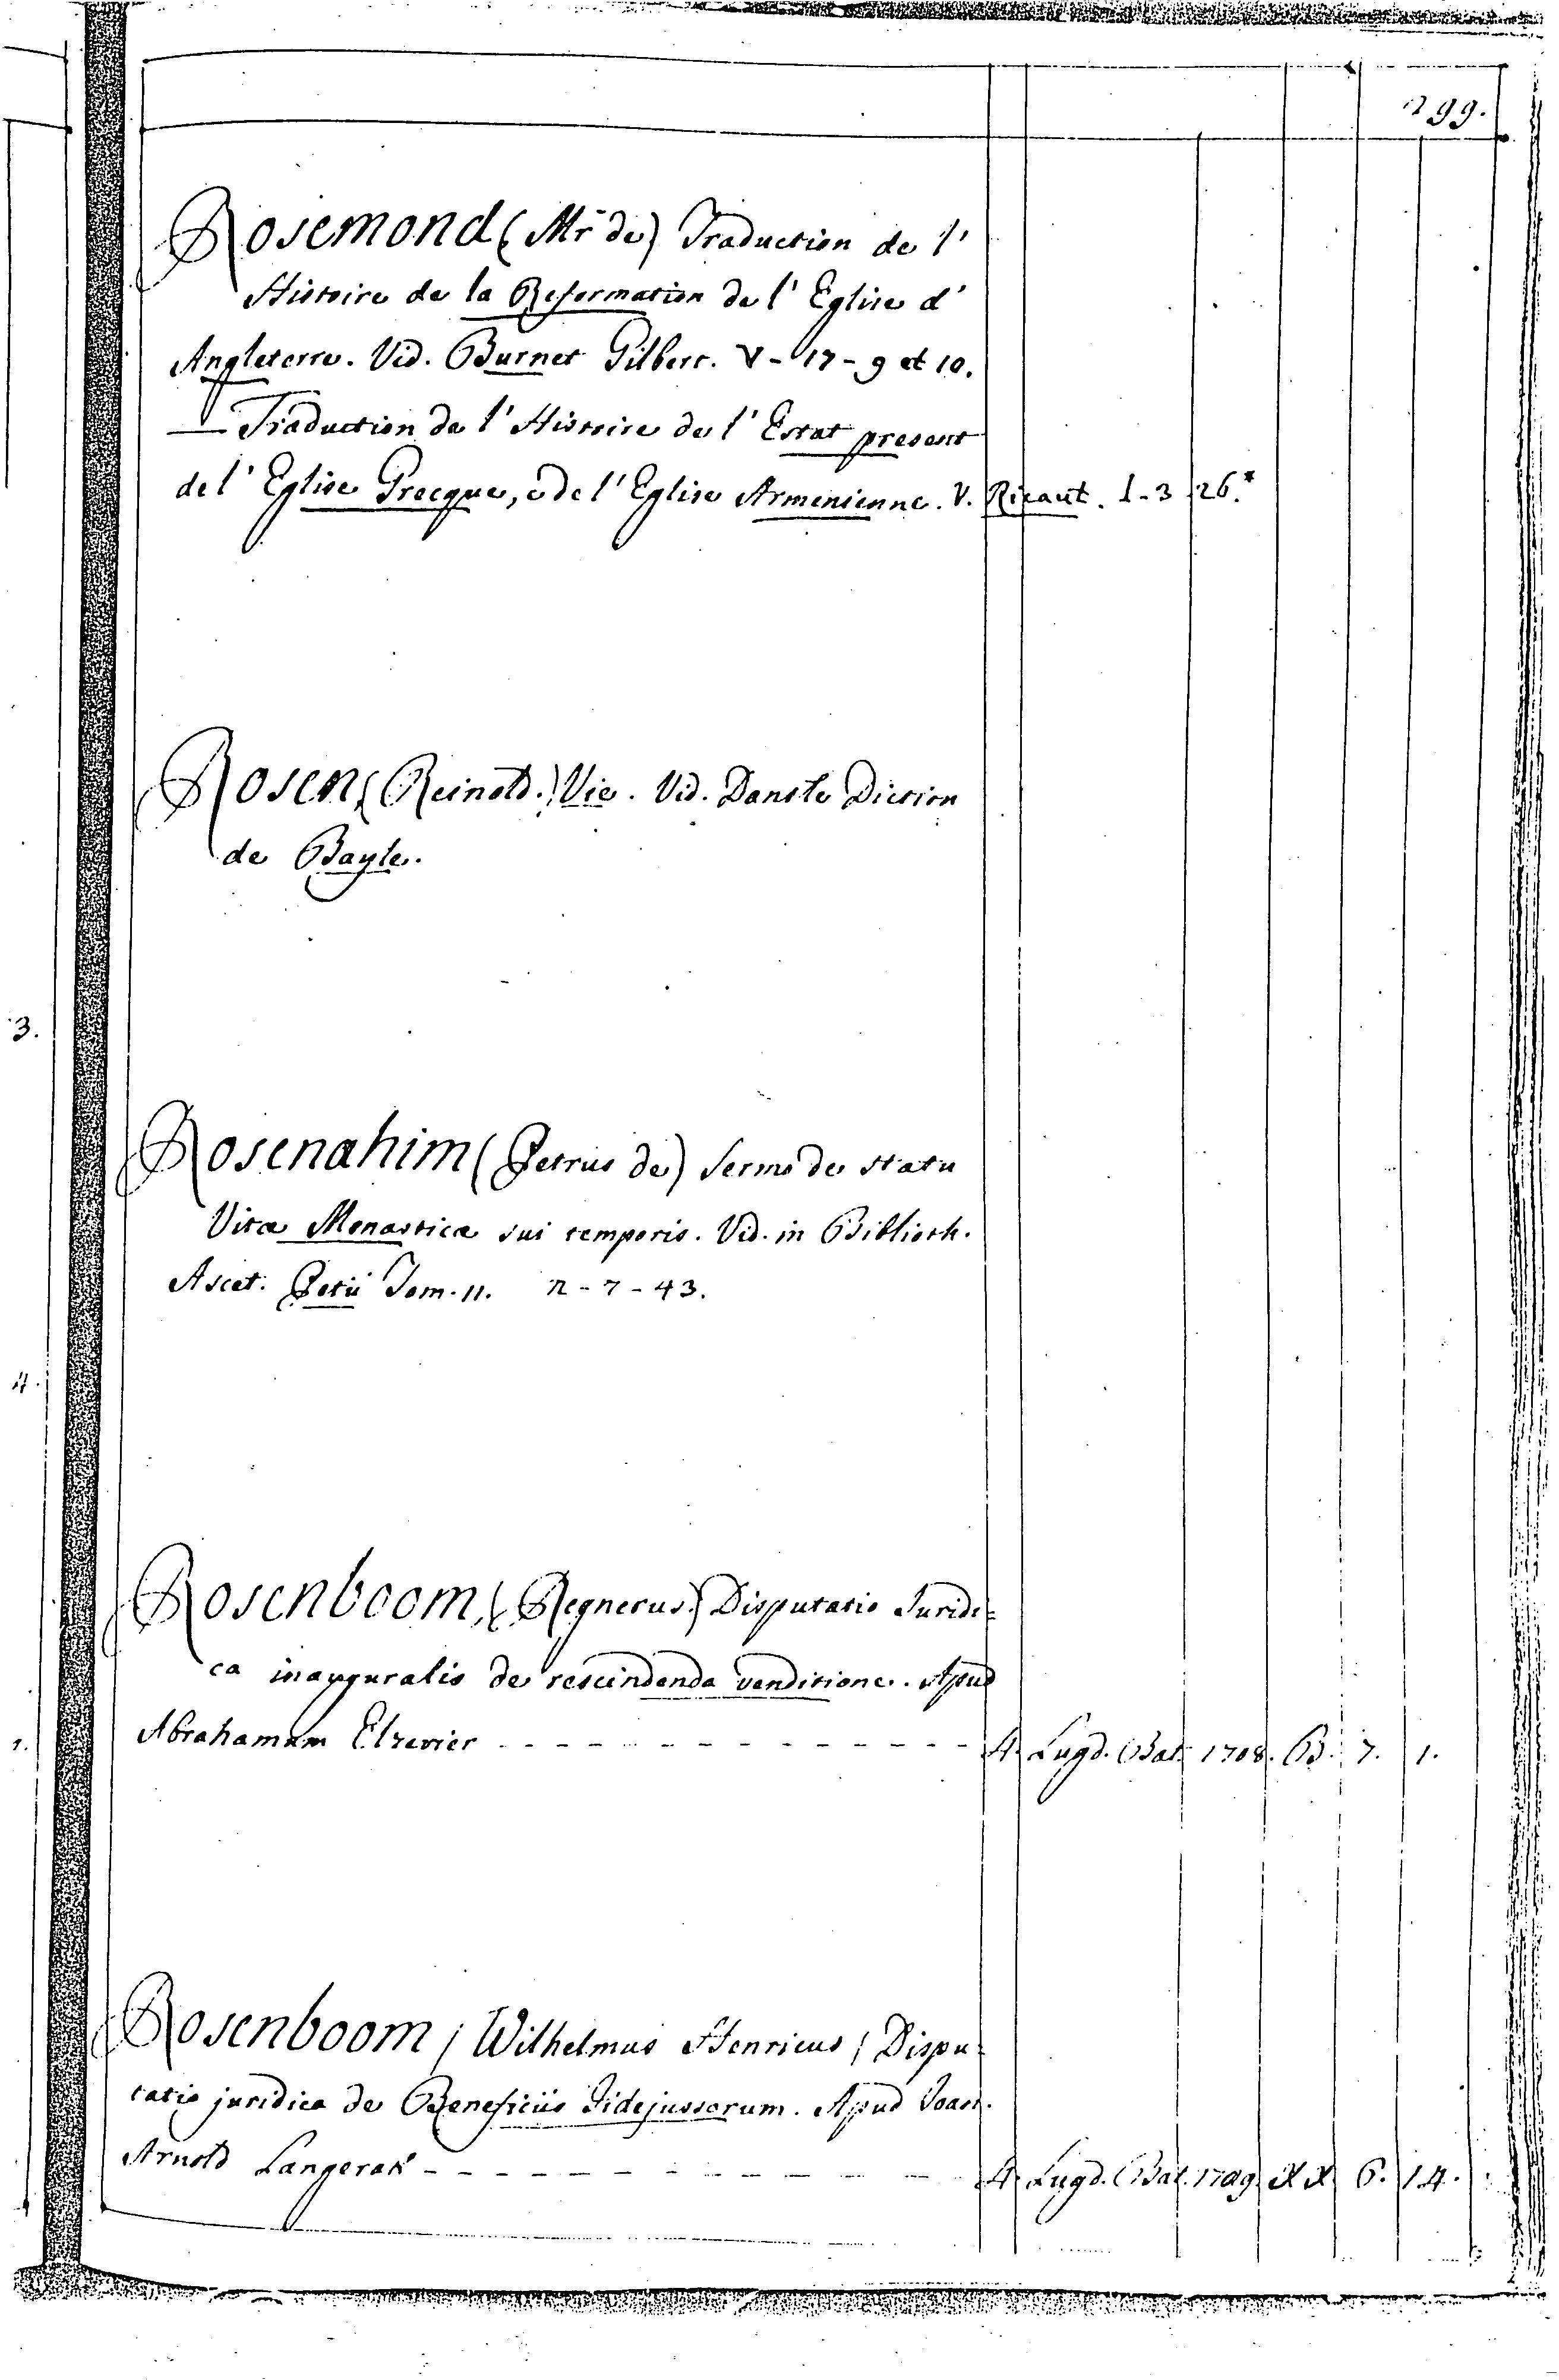 299.
Rosemond (Mr de) Traduction de l'
Histoire de la Reformation de l'Eglise d'
Angleterre. Vid. Burnet Gilbert. V - 17 - 9 et 10.
— Traduction de l'Histoire de l'Estat present
de l'Eglise Grecque, e de l'Eglise Armenienne. V. Ricaut. 1 - 3 26.*
Rosen, (Reinold.) Vie. Vid. Dans le Diction
de Bayle.
3.
Rosenahim (Petrus de) Sermo de statu
Vitæ Monasticæ sui temporis. Vid. in Biblioth.
Ascet. Petii Tom. 11. n - 7 - 43.
4.
Rosenboom, (Regnerus.) Disputatio Juridi=
ca inauguralis de rescindenda venditione. Apud
Abrahamum Elzevier - - - 4. Lugd. Bat. 1708. B. 7. 1.
1.
Rosenboom / Wilhelmus Henricus / Dispu-
tatio juridica de Beneficiis Fidejussorum. Apud Joan.
Arnold Langerak - - - 4. Lugd. Bat. XX 6. 14.